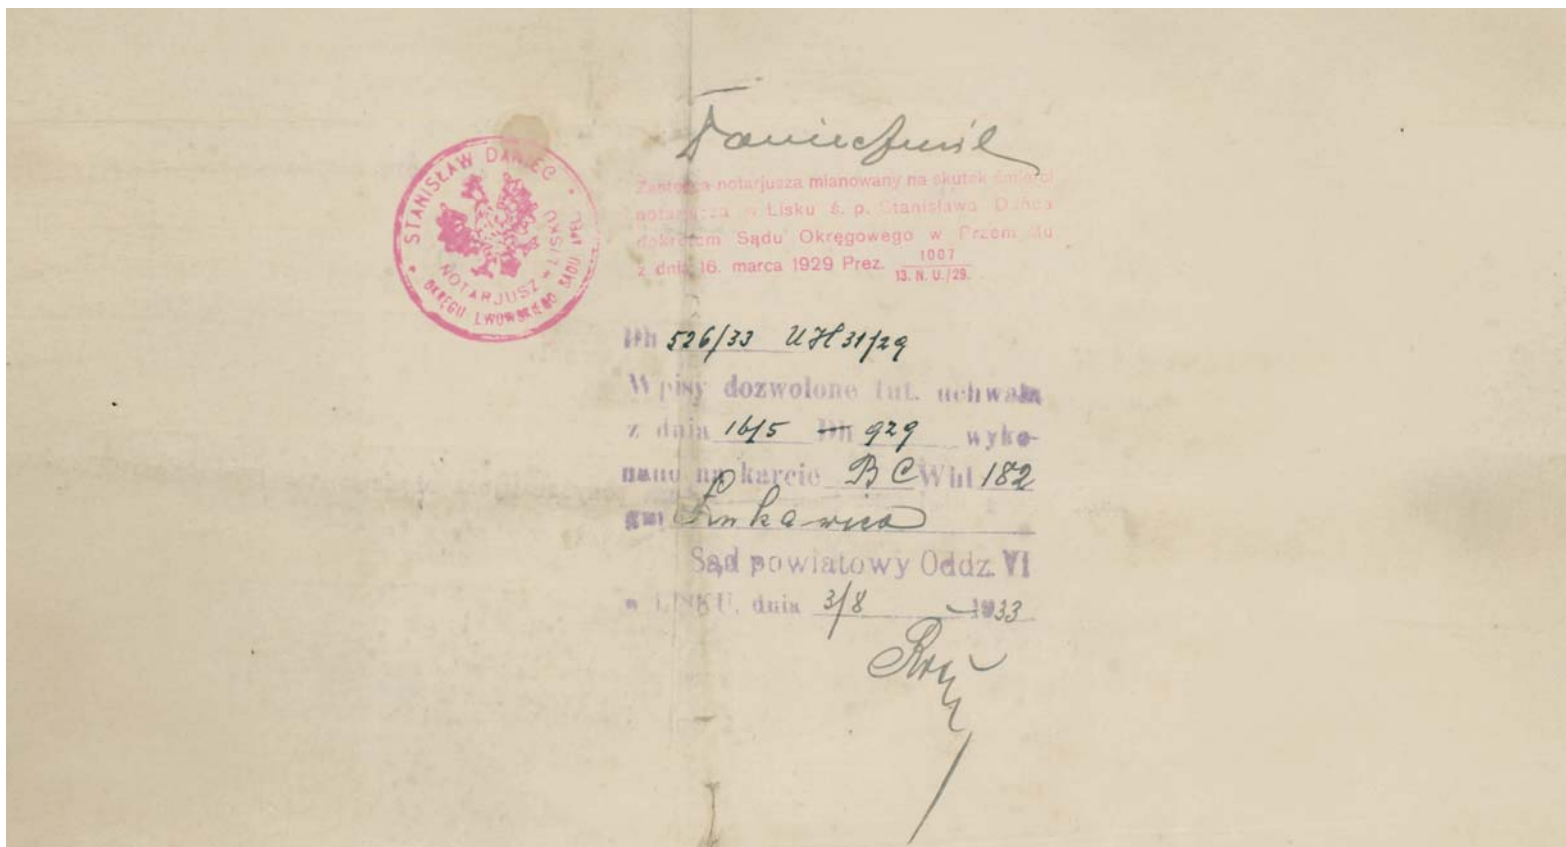 STANISŁAW DANIEC
NOTARJUSZ w LISKU
OKRĘGU LWOWSKIEGO SĄDU APEL.
Zastępca notarjusza mianowany na skutek śmierci
notarjusza w Lisku ś. p. Stanisława Dańca
dekretem Sądu Okręgowego w Przemyślu
z dnia 16. marca 1929 Prez. 1007
13. N. U./29.
Dh 526/33 UH 31/29
Wpisy dozwolone tut. uchwałą
z dnia 16/5 Dh 929 wyko-
nano na karcie B C Whl 182
gm
Sąd powiatowy Oddz. VI
w LISKU, dnia 3/8 1933